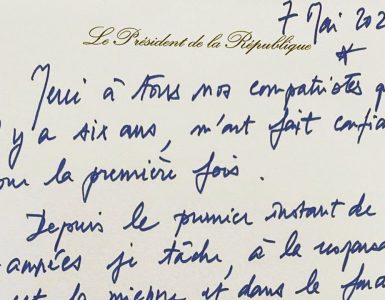 7 Mai 202
Le Président de la République
Merci à tous nos compatriotes q
y a six ans, m'ont fait confia
our la première fois.
Depuis le premier instant de
années je tâche, à la responsa
est la mienne et dans le